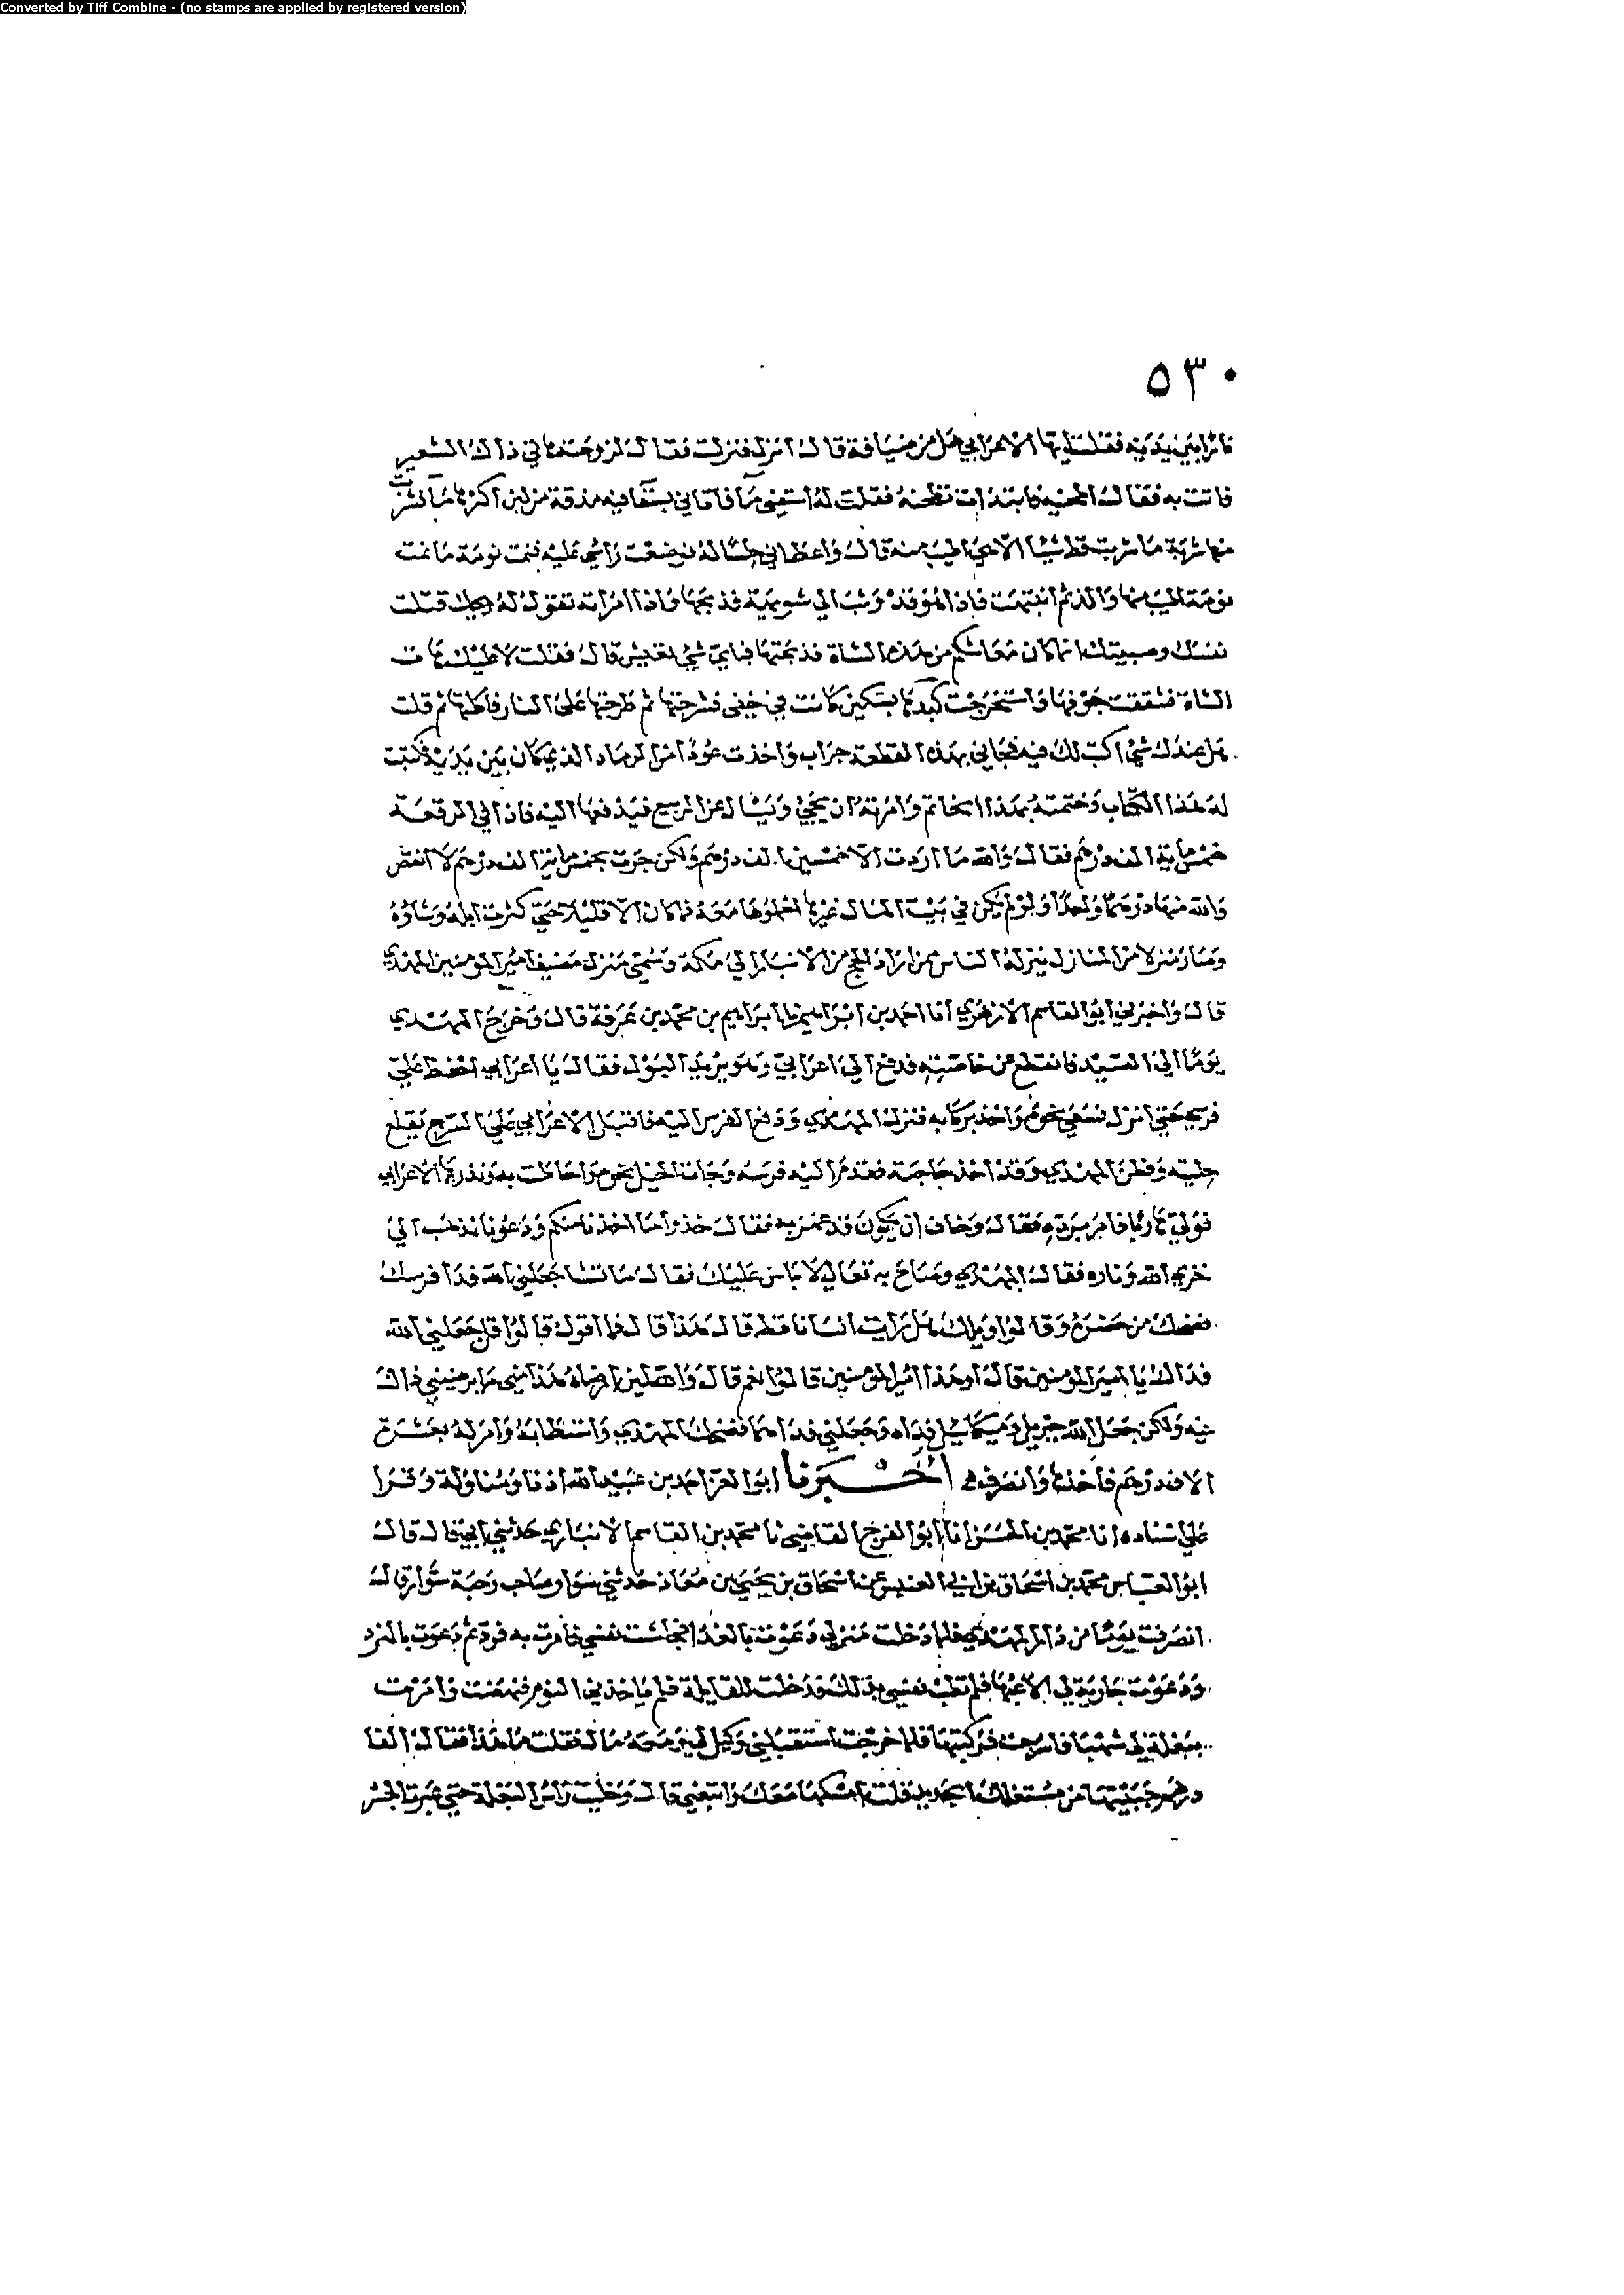 Converted by Tiff Combine - (no stamps are applied by registered version)
٥٣٠
نائرا بين يديه فقلت ايها الاعرابي هل من ضيافة قال انزل فنزلت فقال لزوجته هاتي ذاك الشعير
فاتت به فقال اطحنيه فابتدات تطحنه فقلت له اسقني ماء فاتاني بسقا فيه مذقة من لبن اكثرها ماء فشربت
منها شربة ما شربت قط شيئا الا هي اطيب منه قال واعطاني حلسا له فوضعت راسي عليه فنمت نومة ما نمت
نومة اطيب منها والذ ثم انتبهت فاذا هو قد وثب الي شويهة فذبحها واذا امراته تقول له ويحك قتلت
نفسك وصبيتك انما كان معاشكم من هذه الشاة فذبحتها فباي شي نعيش قال فقلت لا عليك هات
الشاة فشققت جوفها واستخرجت كبدها بسكين كانت في خفي فشرحتها ثم طرحتها على النار فاكلتها ثم قلت
هل عندك شي اكتب لك فيه فجاني بهذه القطعة جراب واخذت عودا من الرماد الذي كان بين يديه فكتبت
له هذا الكتاب وختمته بهذا الخاتم وامرته ان يجي ويسال عن الربيع فيدفعها اليه فاذا في الرقعة
خمس ماية الف درهم فقال والله ما اردت الا خمسين الف درهم ولكن جرت بخمس ماية الف درهم لا انقص
والله منها درهما واحدا ولو لم يكن في بيت المال غيرها احملوها معه فما كان الا قليلا حتي كثرت ابله وشاؤه
وصار منزلا من المنازل ينزله الناس من اراد الحج من الانبار الي مكة وسمي منزل مضيف امير المومنين المهدي
قال واخبرني ابو القاسم الازهري انا احمد بن ابراهيم نا ابراهيم بن محمد بن عرفة قال وخرج المهدي
يوما الي الصيد فانقطع عن خاصته فدفع الي اعرابي وهو يريد البول فقال يا اعرابي احفظ علي
فرسي حتي انزل فسعي نحوه واخذ بركابه فنزل المهدي ودفع الفرس اليه فاقبل الاعرابي علي السرج يقلع
حليته وفطن المهدي وقد اخذ حاجته فقدم اليه فرسه وجات الخيل نحوه واحاطت به ونذر بها الاعرابي
فولي هاربا فامر برده فقال وخاف ان يكون قد غمز به فقال خذوا ما اخذنا منكم ودعونا نذهب الي
خزي الله وناره فقال المهدي وصاح به تعال لا باس عليك فقال ما تشا جعلني الله فدا فرسك
فضحك من حضره وقالوا ويلك هل رايت انسانا قط قال هذا قال فما اقول قالوا قل جعلني الله
فداك يا امير المومنين قال اوهذا امير المومنين قالوا نعم قال والله لئن ارضاه هذا مني ما يرضيني ذاك
فيه ولكن جعل الله جبريل وميكائيل فداه وجعلني فداهما فضحك المهدي واستطابه وامر له بعشرة
الاف درهم فاخذها وانصرف اخبرنا ابو العز احمد بن عبيد الله اذنا ومناولة وقرا
علي اسناده انا محمد بن الحسن انا ابو الفرج القاضي نا محمد بن القاسم الانباري حدثني ابي قال قال
ابو العباس محمد بن اسحاق بن ابي العنبس عن اسحاق بن يحيي بن معاذ حدثني سوار صاحب رحبة سوار قال
انصرفت يوما من دار المهدي فلما دخلت منزلي دعوت بالغدا فجاشت نفسي فامرت به فرد ثم دعوت بالنرد
ودعوت جارية لي الاعبها فلم تطب نفسي بذلك فدخلت للقايلة فلم ياخذني النوم فنهضت وامرت
ببغلة لي شهبا فاسرجت فركبتها فلما خرجت استقبلني وكيل لي ومعه مال فقلت ما هذا فقال الفا
درهم جبيتها من مستغلك الجديد قلت امسكها معك واتبعني قال وخليت راس البغلة حتي عبرت الجسر